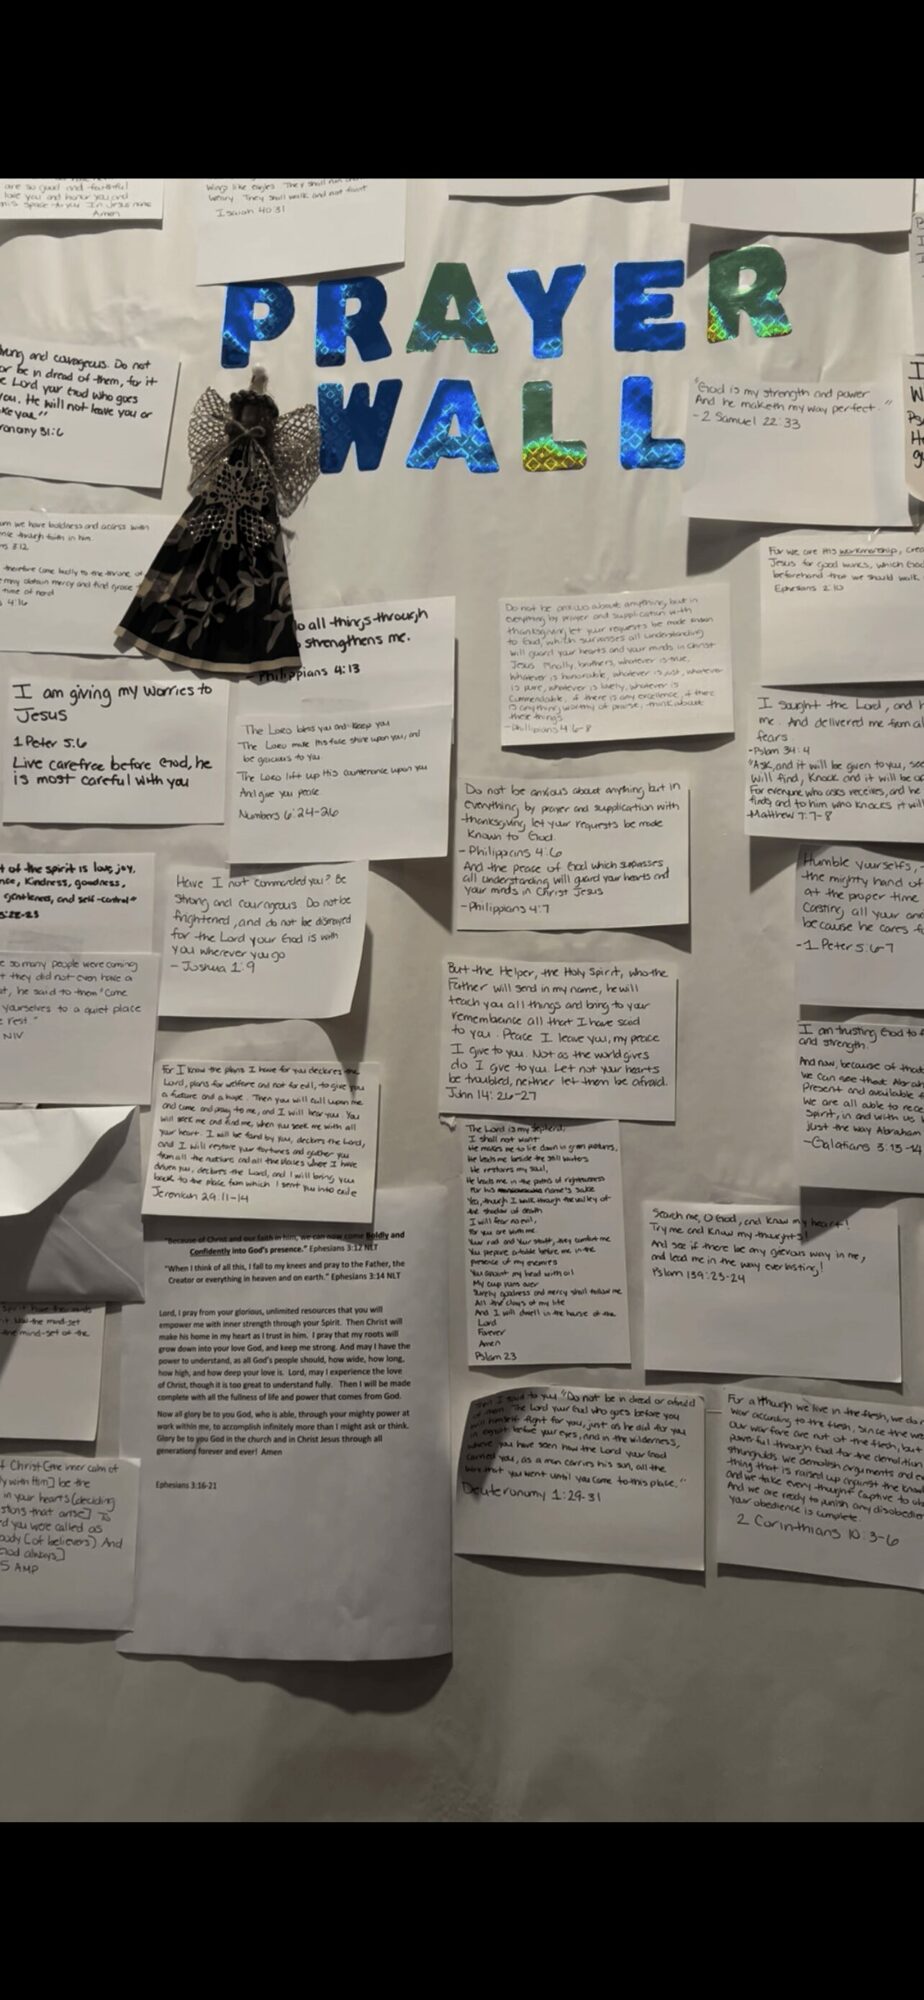 are so good and faithful
love you and honor you and
this space to you In Jesus name
Amen
Wings like eagles They shall run and
Weary They shall walk and not faint
Isaiah 40:31
PRAYER
WALL
strong and courageous. Do not
or be in dread of them, for it
e Lord your God who goes
you. He will not leave you or
ke you"
ronomy 31:6
"God is my strength and power
And he maketh my way perfect."
- 2 Samuel 22:33
om we have boldness and access with
ence through faith in him.
ns 3:12
therefore come boldly to the throne of
may obtain mercy and find grace
time of need
s 4:16
For we are His workmanship, crea
Jesus for good works, which God
beforehand that we should walk
Ephesians 2:10
o all things through
strengthens me.
- Philippians 4:13
Do not be anxious about anything, but in
everything by prayer and supplication with
thanksgiving let your requests be made known
to God, which surpasses all understanding
will guard your hearts and your minds in Christ
Jesus Finally, brothers, whatever is true,
Whatever is honorable, whatever is just, whatever
is pure, whatever is lovely, whatever is
Commendable, if there is any excellence, if there
is anything worthy of praise, think about
these things
- Phillipians 4:6-8
I am giving my worries to
Jesus
1 Peter 5:6
Live carefree before God, he
is most careful with you
The LORD bless you and keep you
The LORD make His face shine upon you, and
be gracious to you
The LORD lift up His countenance upon you
And give you peace
Numbers 6:24-26
I sought the Lord, and h
me. And delivered me from al
fears.
-Pslam 34:4
"Ask, and it will be given to you, see
Will find, Knock and it will be op
For everyone who asks receives, and he
finds and to him who knocks it will
-Matthew 7:7-8
Do not be anxious about anything but in
everything, by prayer and supplication with
thanksgiving, let your requests be made
known to God.
- Philippians 4:6
And the peace of God which surpasses
all understanding will guard your hearts and
your minds in Christ Jesus
- Philippians 4:7
t of the spirit is love, joy,
nce, Kindness, goodness,
gentleness, and self-control"
5:22-23
Have I not commanded you? Be
strong and courageous. Do not be
frightened, and do not be dismayed
for the Lord your God is with
you wherever you go
- Joshua 1:9
Humble yourselfs,
the mighty hand of
at the proper time
Casting all your an
because he cares f
- 1 Peter 5:6-7
e so many people were coming
t they did not even have a
at, he said to them "Come
yourselves to a quiet place
rest"
NIV
But the Helper, the Holy Spirit, who the
Father will send in my name, he will
teach you all things and bring to your
remembeance all that I have said
to you. Peace I leave you, my peace
I give to you. Not as the world gives
do I give to you. Let not your hearts
be troubled, neither let them be afraid.
John 14:26-27
I am trusting God to f
and strength.
And now, because of that
we can see that Abrah
Present and available f
We are all able to rece
Spirit, in and with us
just the way Abraham
- Galatians 3:13-14
For I know the plans I have for you declares the
Lord, plans for welfare and not for evil, to give you
a future and a hope. Then you will call upon me
and come and pray to me, and I will hear you. You
will seek me and find me, when you seek me with all
your heart. I will be found by you, declares the Lord,
and I will restore your fortunes and gather you
from all the nations and all the places where I have
driven you, declares the Lord, and I will bring you
back to the place from which I sent you into exile
Jeremiah 29:11-14
The Lord is my shepherd;
I shall not want
He makes me to lie down in green pastures,
He leads me beside the still waters
He restores my soul,
He leads me in the paths of righteousness
For his name's sake
Yea, though I walk through the valley of
the shadow of death
I will fear no evil,
for you are with me
Your rod and Your staff, they comfort me
You prepare a table before me in the
presence of my enemies
You anoint my head with oil
My cup runs over
Surely goodness and mercy shall follow me
All the days of my life
And I will dwell in the house of the
Lord
Forever
Amen
Pslam 23
Search me, O God, and know my heart!
Try me and know my thoughts!
And see if there be any grievous way in me,
and lead me in the way everlasting!
Pslam 139:23-24
"Because of Christ and our faith in him, we can now come Boldly and
Confidently into God's presence." Ephesians 3:12 NLT
"When I think of all this, I fall to my knees and pray to the Father, the
Creator or everything in heaven and on earth." Ephesians 3:14 NLT
Lord, I pray from your glorious, unlimited resources that you will
empower me with inner strength through your Spirit. Then Christ will
make his home in my heart as I trust in him. I pray that my roots will
grow down into your love God, and keep me strong. And may I have the
power to understand, as all God's people should, how wide, how long,
how high, and how deep your love is. Lord, may I experience the love
of Christ, though it is too great to understand fully. Then I will be made
complete with all the fullness of life and power that comes from God.
Now all glory be to you God, who is able, through your mighty power at
work within me, to accomplish infinitely more than I might ask or think.
Glory be to you God in the church and in Christ Jesus through all
generations forever and ever! Amen
Ephesians 3:16-21
the mind-set
the mind-set of the
I said to you "Do not be in dread or afraid
of them. The Lord your God who goes before you
will himself fight for you, just as he did for you
in egypt before your eyes, and in the wilderness,
where you have seen how the Lord your God
carried you, as a man carries his son, all the
way that you went until you come to this place."
Deuteronomy 1:29-31
For although we live in the flesh, we do n
war according to the flesh, since the we
Our warfare are not of the flesh, but
powerful through God for the demolition
strongholds. We demolish arguments and e
thing that is raised up against the know
and we take every thought captive to ob
And we are ready to punish any disobedien
your obedience is complete.
2 Corinthians 10:3-6
f Christ [the inner calm of
y with Him] be the
in your hearts [deciding
stions that arise] To
d you were called as
body [of believers] And
God always]
5 AMP